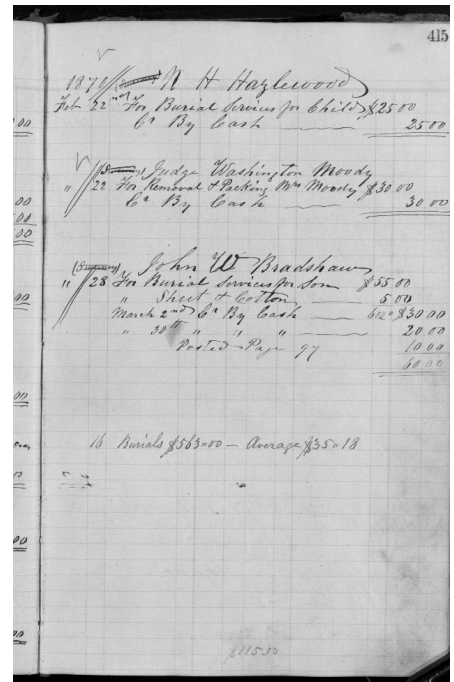 415
1879 (Sunday) N H Hazlewood
Feb 22nd For Burial Services for Child $25 00
Cr By Cash 25 00
Judge Washington Moody
" 22 For Removal & Packing Mrs Moody $30 00
Cr By Cash 30.00
John W Bradshaw
" 28 For Burial Services for Son $55.00
" Sheet & Cotton 5 00
March 2nd Cr By Cash 60 00 $30.00
" 30th " " " 20.00
Posted Page 97 10.00
60.00
16 Burials $563"00 — Average $35"18
$115.00